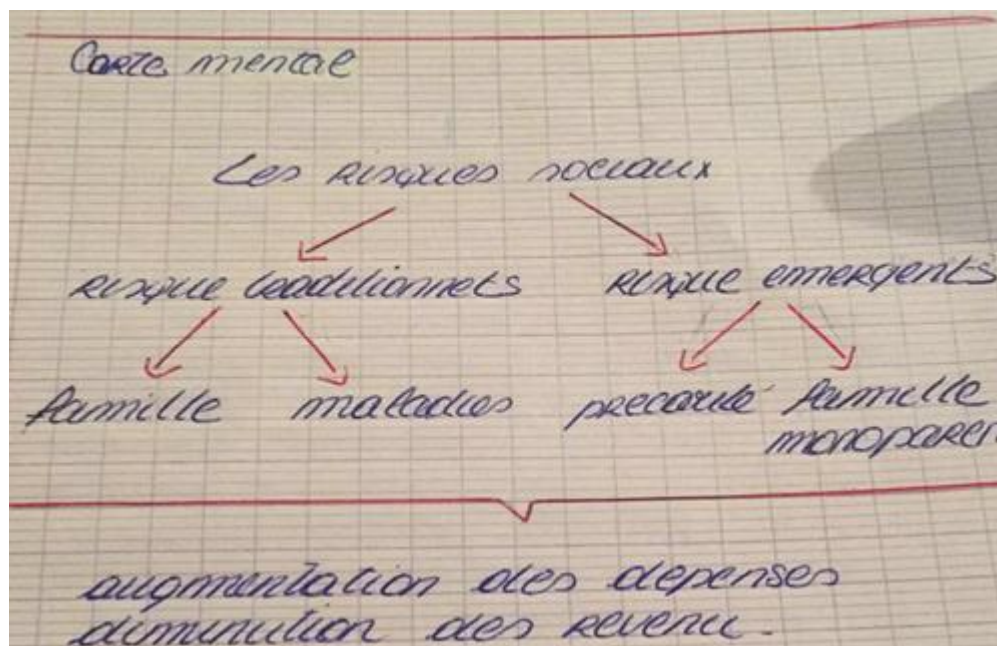 Carte mental
Les risques sociaux
risque traditionnels risque emmergents
famille maladies precarité famille
monoparen
augmentation des depenses
diminution des revenu.